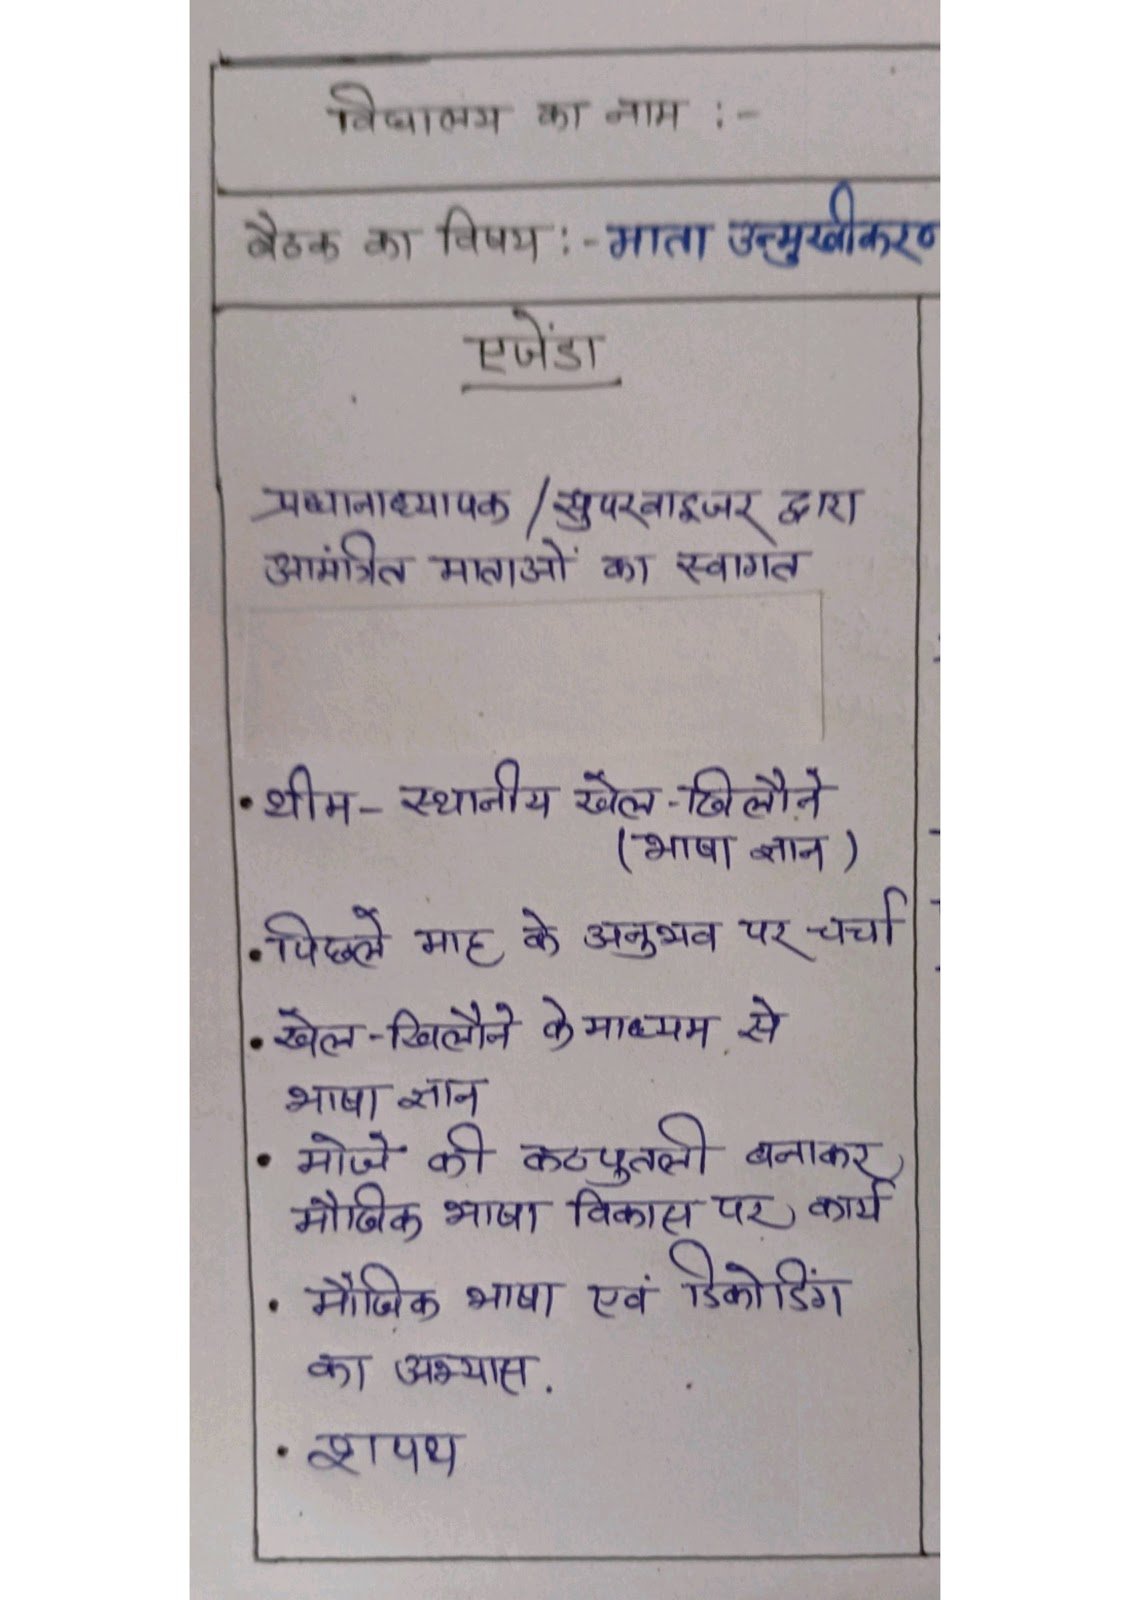 विद्यालय का नाम :-
बैठक का विषय :- माता उन्मुखीकरण
एजेंडा
प्रधानाध्यापक / सुपरवाइजर द्वारा
आमंत्रित माताओं का स्वागत
• थीम - स्थानीय खेल - खिलौने
(भाषा ज्ञान)
• पिछले माह के अनुभव पर चर्चा
• खेल - खिलौने के माध्यम से
भाषा ज्ञान
• मोजे की कठपुतली बनाकर
मौखिक भाषा विकास पर कार्य
• मौखिक भाषा एवं डिकोडिंग
का अभ्यास.
• शपथ